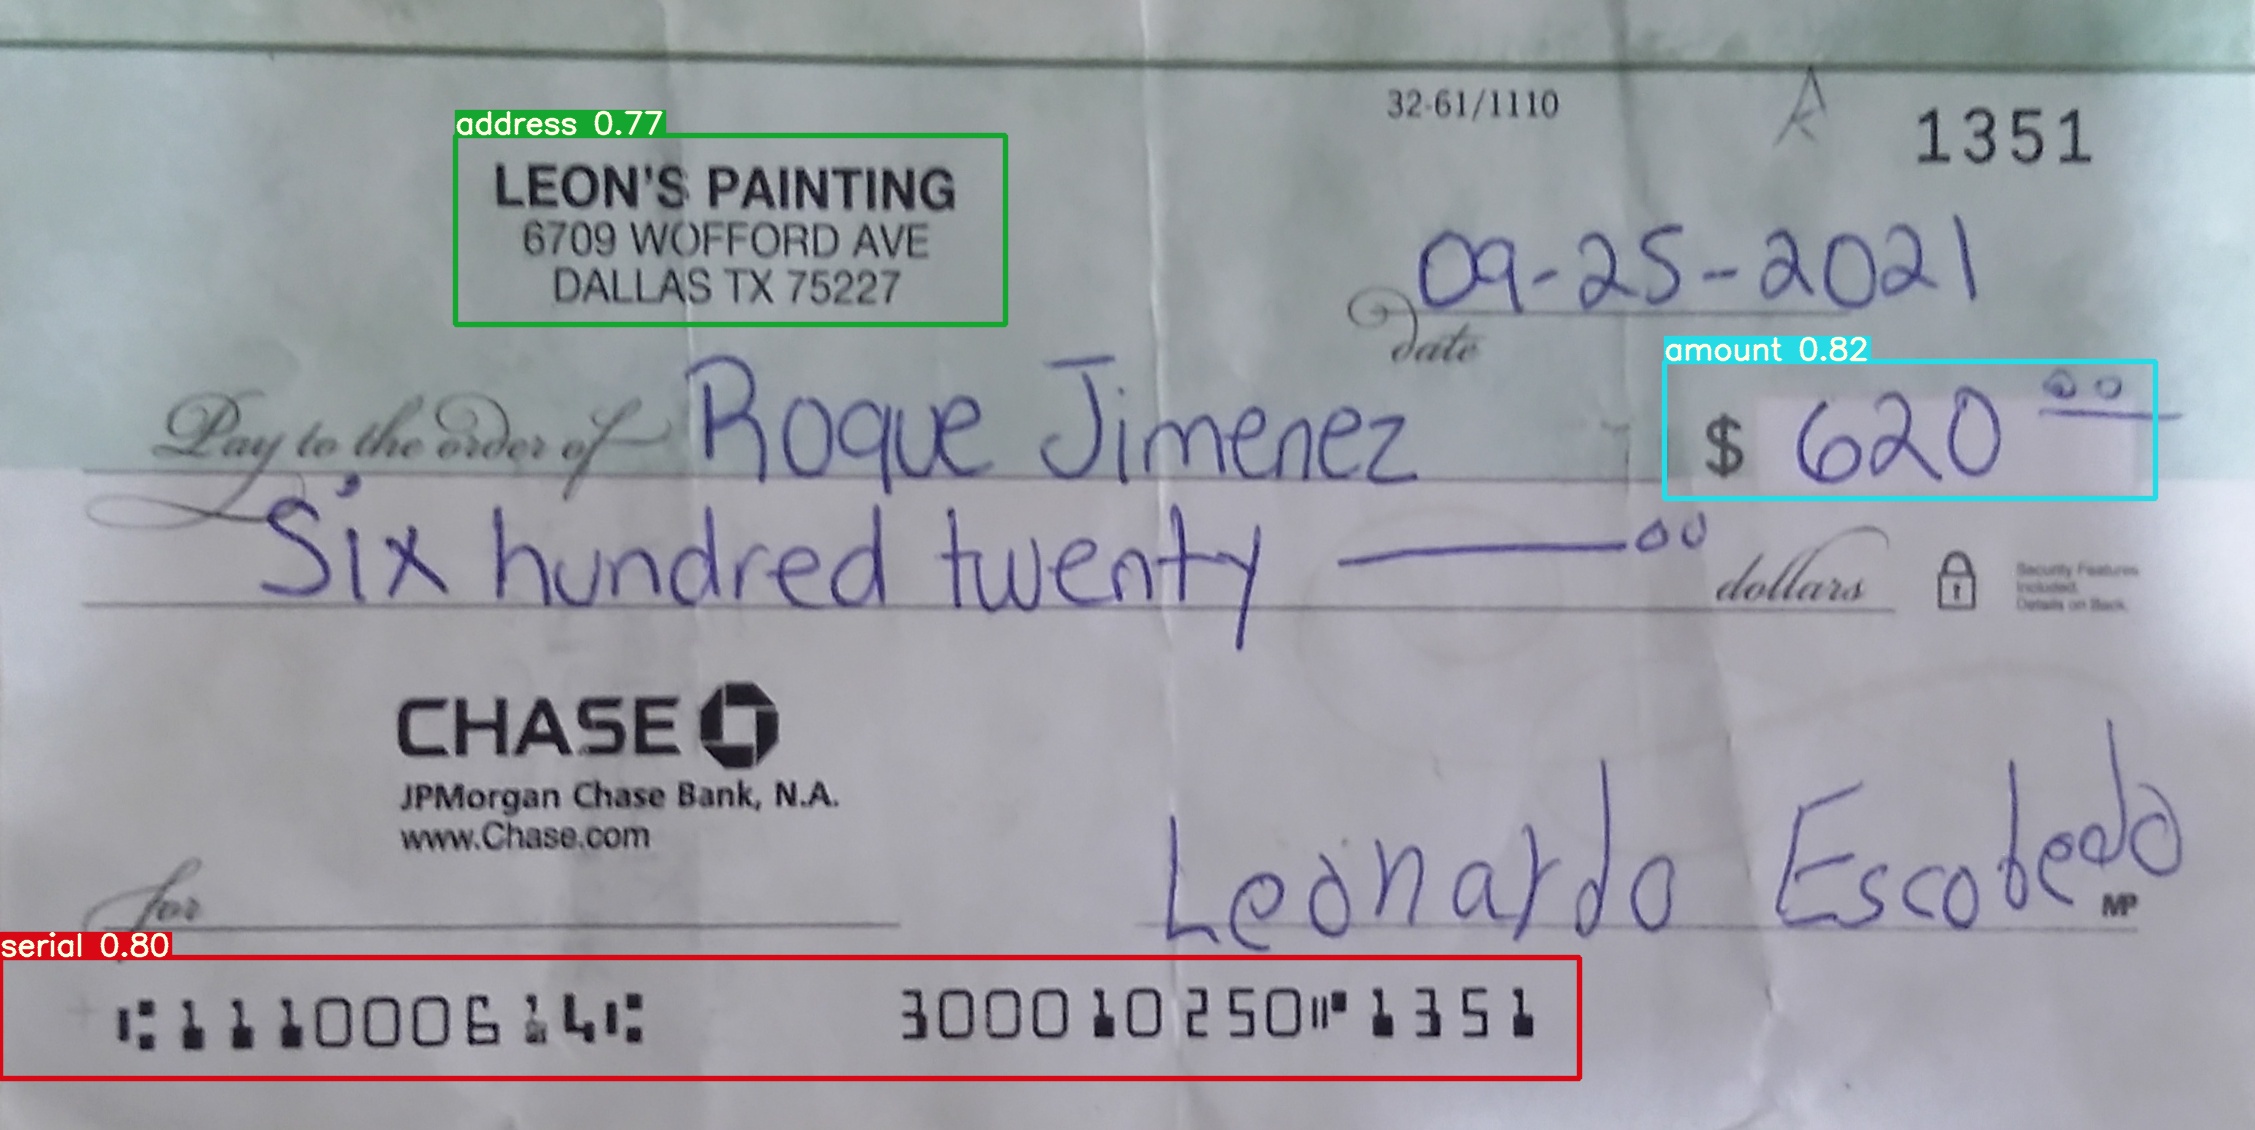 32-61/1110
A
1351
address 0.77
LEON'S PAINTING
6709 WOFFORD AVE
DALLAS TX 75227
09-25-2021
date
amount 0.82
Pay to the order of Roque Jimenez $ 620 00
Six hundred twenty 00 dollars
Security Features
Included.
Details on Back.
CHASE
JPMorgan Chase Bank, N.A.
www.Chase.com
for
Leonardo Escobedo
MP
serial 0.80
⑆111000614⑆ 300010250⑈1351